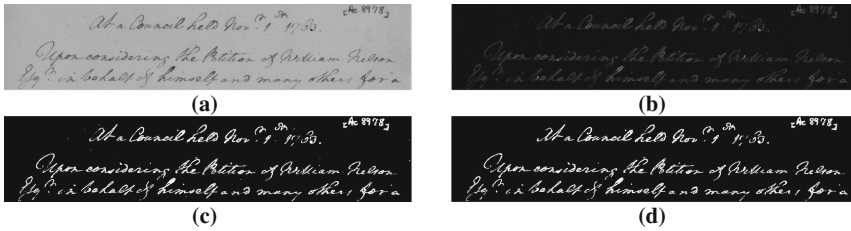 At a Council held Nov.r 1st 1763. [Ac 8978]
Upon considering the Petition of William Nelson
Esqr. in behalf of himself and many others for a
(a)
At a Council held Nov.r 1st 1763. [Ac 8978]
Upon considering the Petition of William Nelson
Esqr. in behalf of himself and many others for a
(b)
At a Council held Nov.r 1st 1763. [Ac 8978]
Upon considering the Petition of William Nelson
Esqr. in behalf of himself and many others for a
(c)
At a Council held Nov.r 1st 1763. [Ac 8978]
Upon considering the Petition of William Nelson
Esqr. in behalf of himself and many others for a
(d)